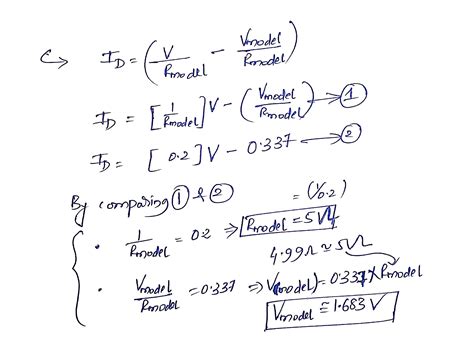 ↪ I_D = (V/Rmodel - Vmodel/Rmodel)
I_D = [1/Rmodel]V - (Vmodel/Rmodel) → ①
I_D = [0.2]V - 0.337 → ②
By comparing ① & ②
= (1/0.2)
• 1/Rmodel = 0.2 ⇒ Rmodel = 5Ω
4.99Ω ≅ 5Ω
• Vmodel/Rmodel = 0.337 ⇒ V(model) = 0.337 × Rmodel
Vmodel ≅ 1.683 V